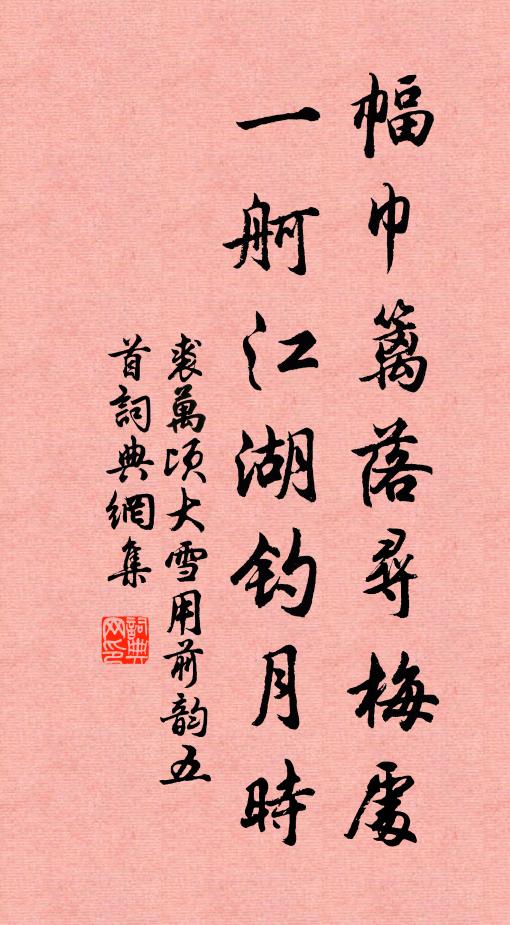 幅巾篱落尋梅處
一舸江湖钓月時
裘萬頃大雪用前韵五
首詞典網集
詞典网印